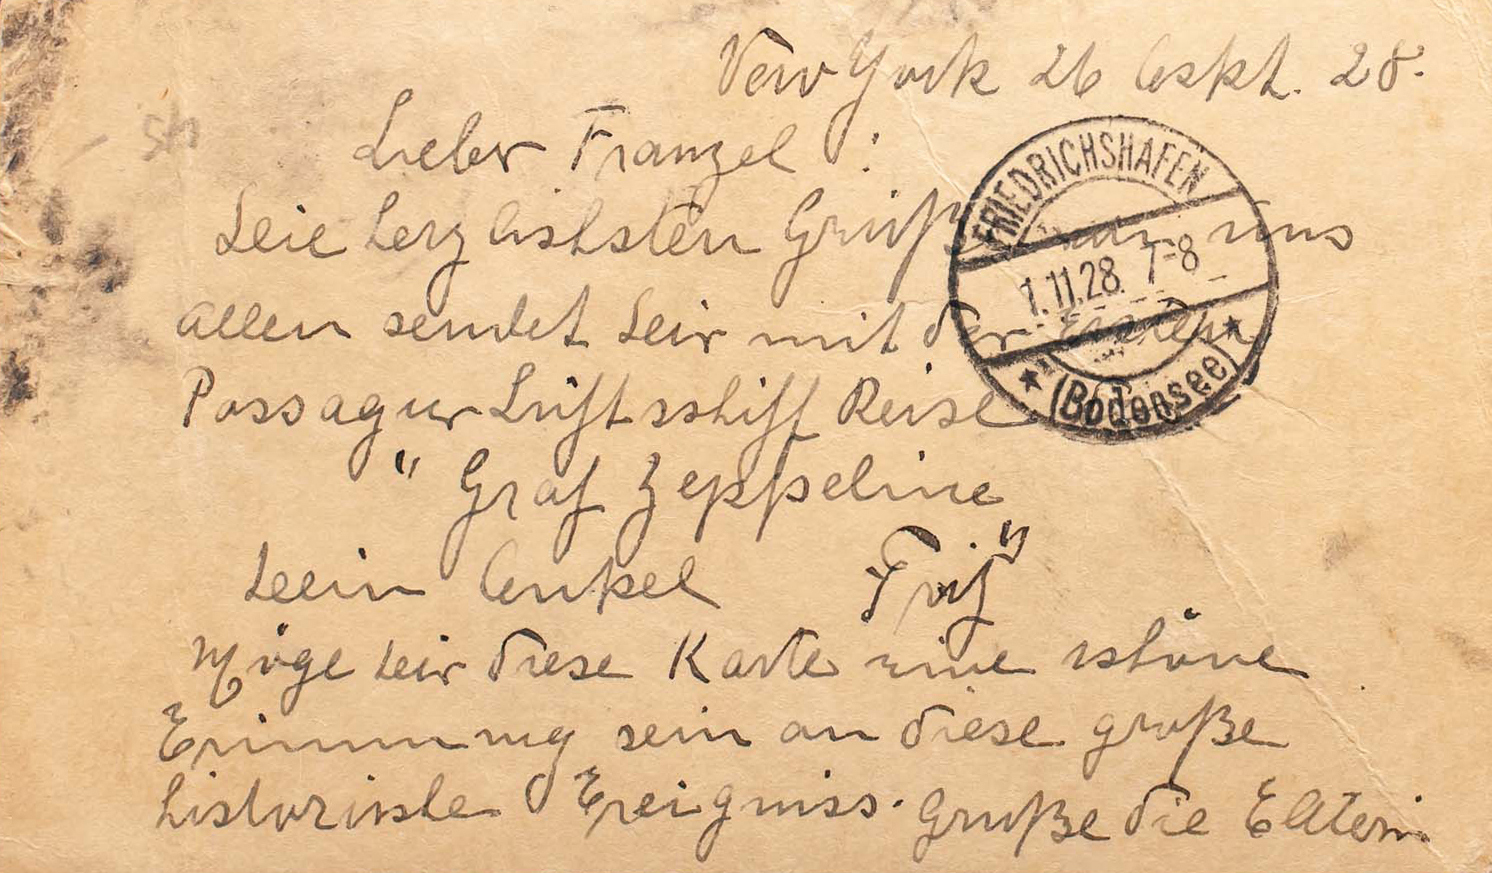 New York 26 Okt. 28.
Lieber Franzel :
Die herzlichsten Grüße von uns
allen sendet Dir mit der ersten
Passagier Luftschiff Reise
" Graf Zeppeline "
Dein Onkel Fritz
Möge Dir diese Karte eine schöne
Erinnerung sein an diese große
historische Ereigniss. Grüße die Eltern
FRIEDRICHSHAFEN
1.11.28. 7-8
(Bodensee)